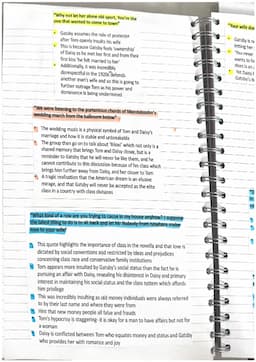 "Why not let her phone old sport, You're the
one that wanted to come to town"
Gatsby assumes the role of protector
after Tom overtly treats his wife
This is because Gatsby feels 'ownership'
of Daisy as he met her first and from their
first kiss 'he felt married to her'
Additionally, it was incredibly
disrespectful in the 1920s defends
another man's wife and so this is going to
further outrage Tom as his power and
dominance is being undermined
"We were listening to the portentous chords of Mendelssohn's
wedding march from the ballroom below"
The wedding music is a physical symbol of Tom and Daisy's
marriage and how it is stable and untouchable
The group then go on to talk about 'Biloxi' which not only is a
shared memory that brings Tom and Daisy closer, but is a
reminder to Gatsby that he will never be like them, and he
cannot contribute to this discussion because of his class which
brings him further away from Daisy, and her closer to Tom
A tragic realisation that the American dream is an elusive
mirage, and that Gatsby will never be accepted as the elite
class in a country with class divisions
"What kind of a row are you trying to cause in my house anyhow? I suppose
the latest thing is to sit back and let Mr Nobody from nowhere make
love to your wife"
This quote highlights the importance of class in the novella and that love is
dictated by social conventions and restricted by ideas and prejudices
concerning class race and conservative family institutions
Tom appears more insulted by Gatsby's social status than the fact he is
pursuing an affair with Daisy, revealing his disinterest in Daisy and primary
interest in maintaining his social status and the class system which affords
him privilege
This was incredibly insulting as old money individuals were always referred
to by their last name and where they were from
Hint that new money people all false and frauds
Tom's hypocrisy is staggering- it is okay for a man to have affairs but not for
a woman
Daisy is conflicted between Tom who equates money and status and Gatsby
who provides her with romance and joy
"Your wife
Gatsby is